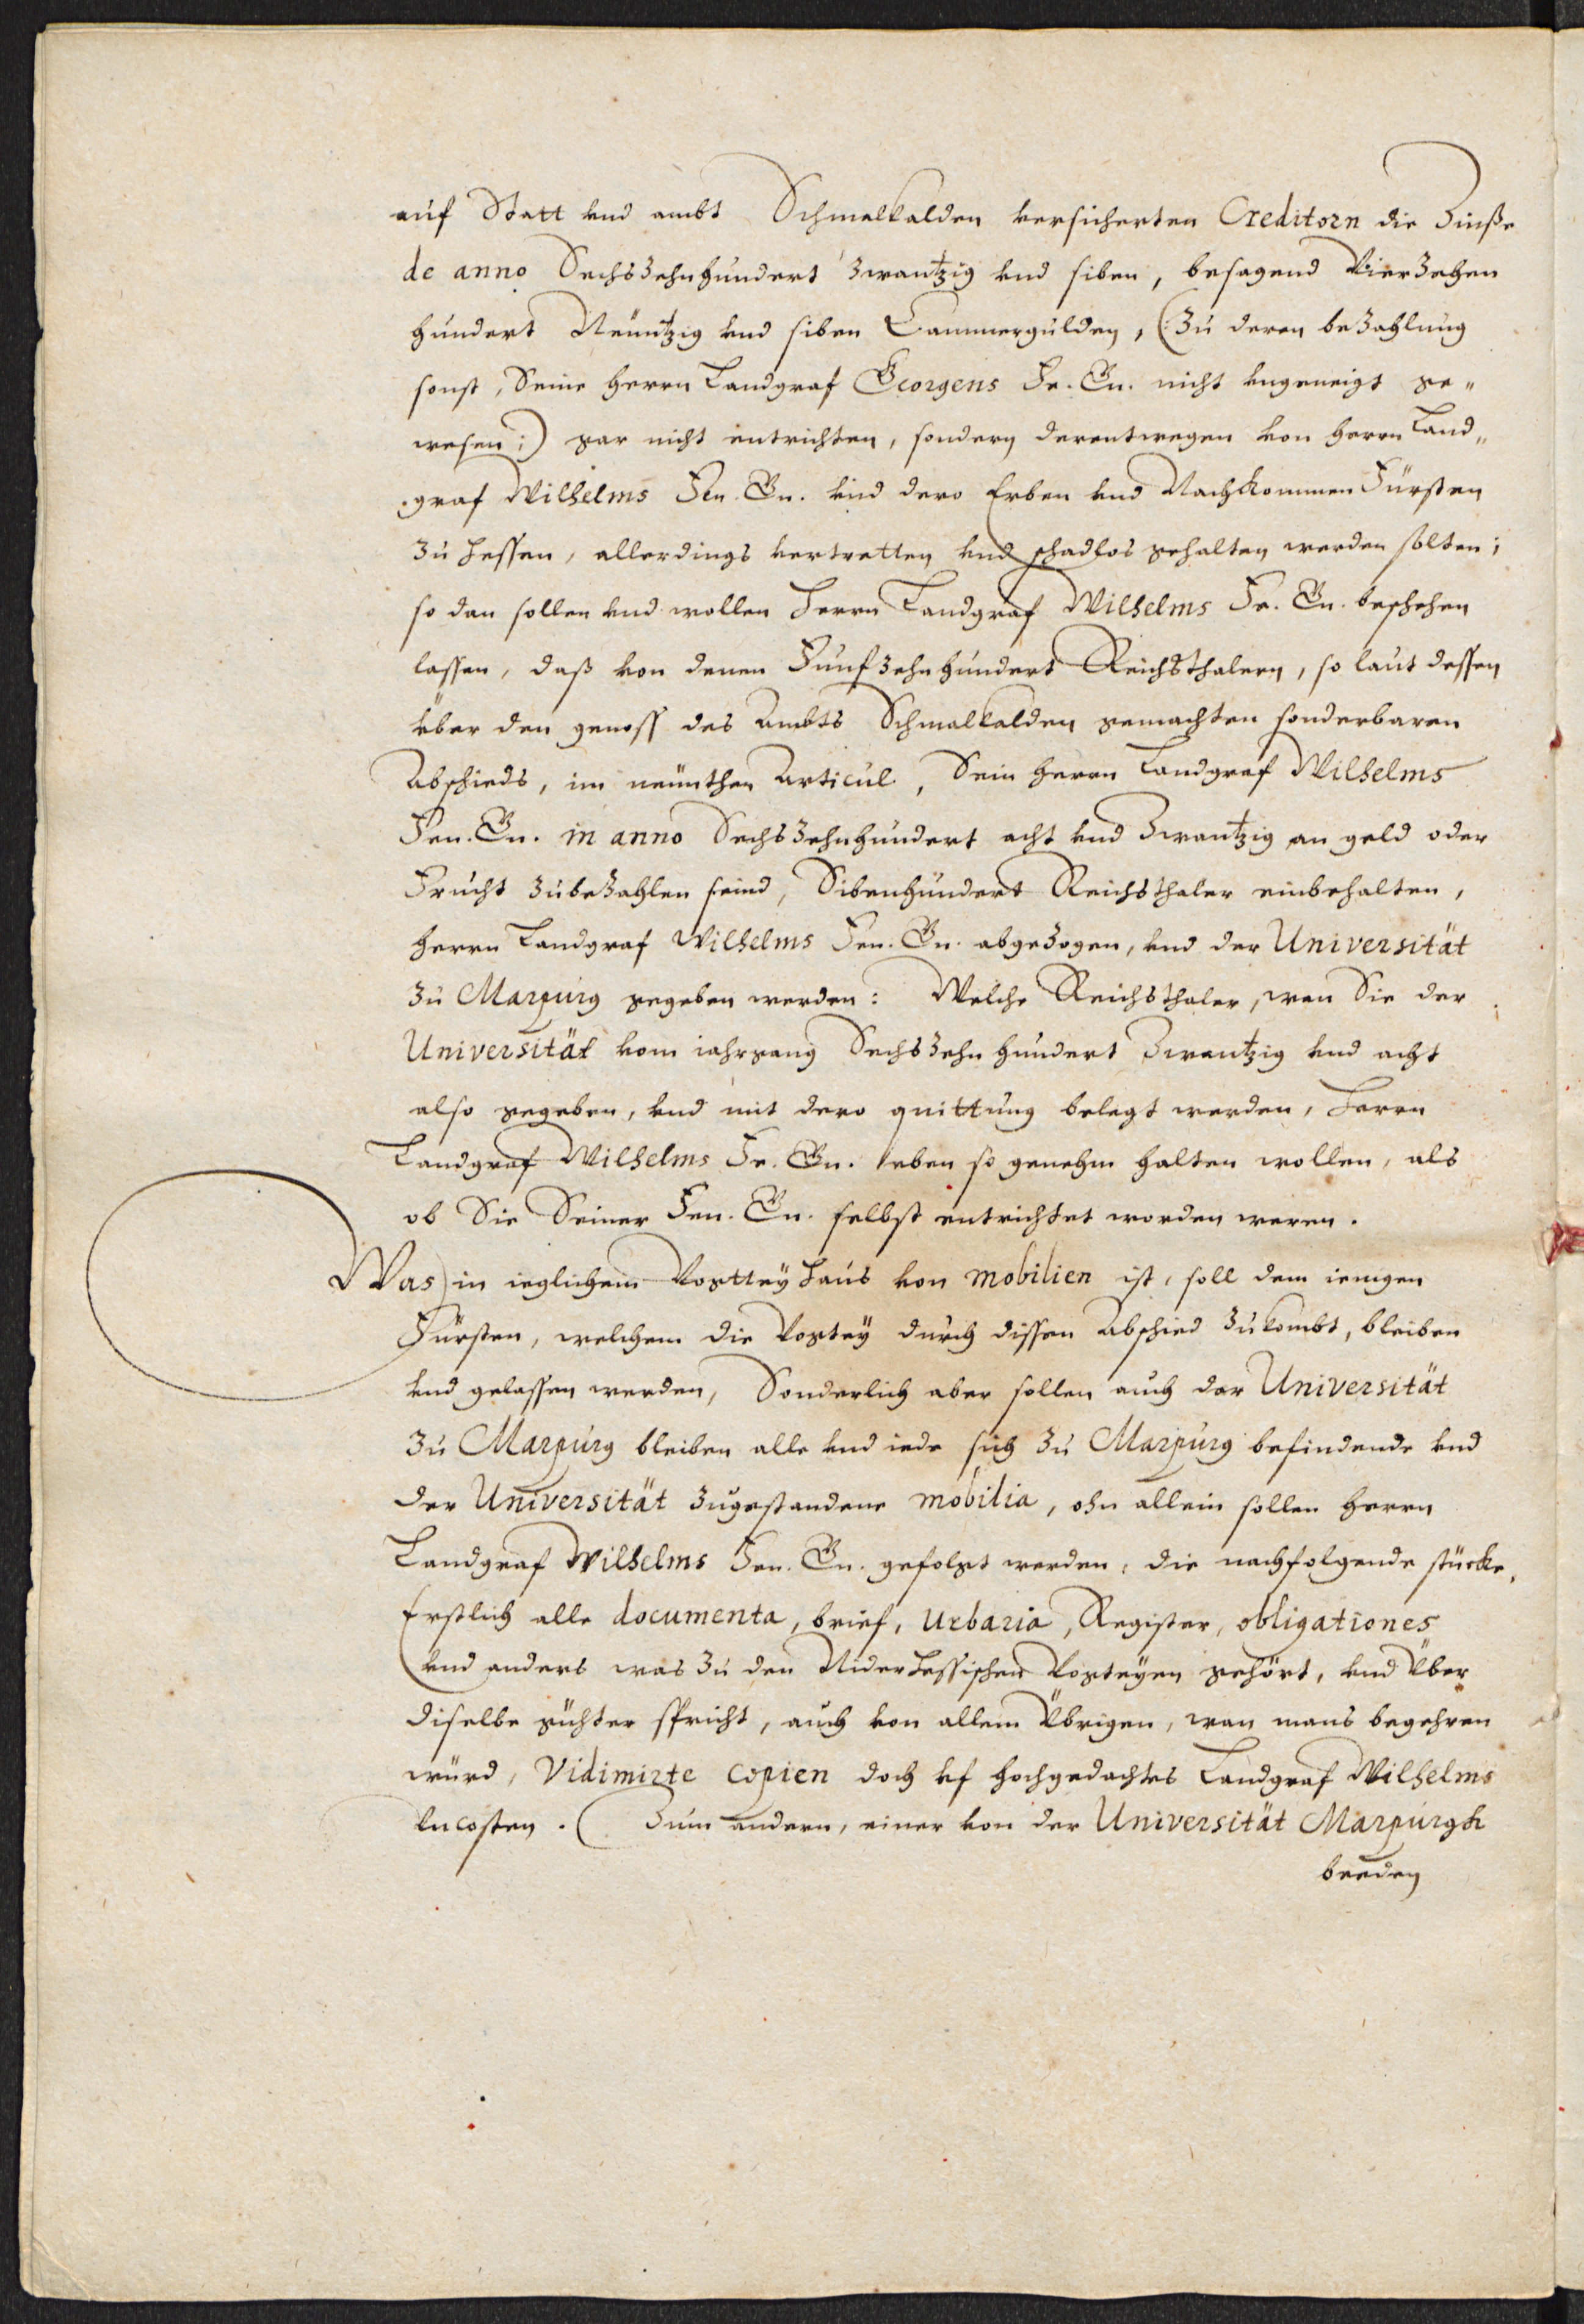 auf Statt vnd ambt Schmalkalden versicherten Creditorn die Zinße
de anno Sechszehnhundert zwantzig vnd siben, besagend Vierzehen
hundert Neüntzig vnd siben Cammergulden, (: zu deren bezahlung
sonst, Seine herrn Landgraf Georgens Fr. Gn. nicht vngeneigt ge„
wesen :) gar nicht entrichten, sondern derentwegen von herrn Land„
graf Wilhelms Frn. Gn. vnd dero Erben vnd Nachkommen Fürsten
zu Hessen, allerdings vertretten vnd schadlos gehalten werden solten;
so dan sollen vnd wollen Herrn Landgraf Wilhelms Fr. Gn. beschehen
lassen, daß von denen Funfzehnhundert Reichsthalern, so laut dessen
über den genoss des Ambts Schmalkalden gemachten sonderbaren
Abschieds, im neünthen Articul, Sein herrn Landgraf Wilhelms
Frn. Gn. in anno Sechszehnhundert acht vnd zwantzig an geld oder
Frucht zubezahlen seind, Sibenhundert Reichsthaler einbehalten,
herrn Landgraf Wilhelms Frn. Gn. abgezogen, vnd der Universität
zu Marpurg gegeben werden: Welche Reichsthaler, wan Sie der
Universität vom iahrgang Sechszehnhundert Zwantzig vnd acht
also gegeben, vnd mit dero quittung belegt werden, Herrn
Landgraf Wilhelms Fr. Gn. eben so genehm halten wollen, als
ob Sie Seiner Frn. Gn. selbst entrichtet worden weren.
Was in ieglichem Vogttey Haus von mobilien ist, soll dem ienigen
Fürsten, welchem die Vogtey durch dissen Abschied zukombt, bleiben
vnd gelassen werden, Sonderlich aber sollen auch der Universität
zu Marpurg bleiben alle vnd iede sich zu Marpurg befindende vnd
der Universität zugestandene mobilia, ohn allein sollen herrn
Landgraf Wilhelms Frn. Gn. gefolgt werden, die nachfolgende stücke,
Erstlich alle documenta, brief, Urbaria, Register, obligationes
vnd anders was zu den Niderhessischen Vogteyen gehört, vnd über
diselbe spricht, auch von allem übrigen, wan mans begehren
würd, Vidimirte Copien doch vf hochgedachtes Landgraf Wilhelms
Vncosten. Zum andern, einer von der Universität Marpurgk
beeden